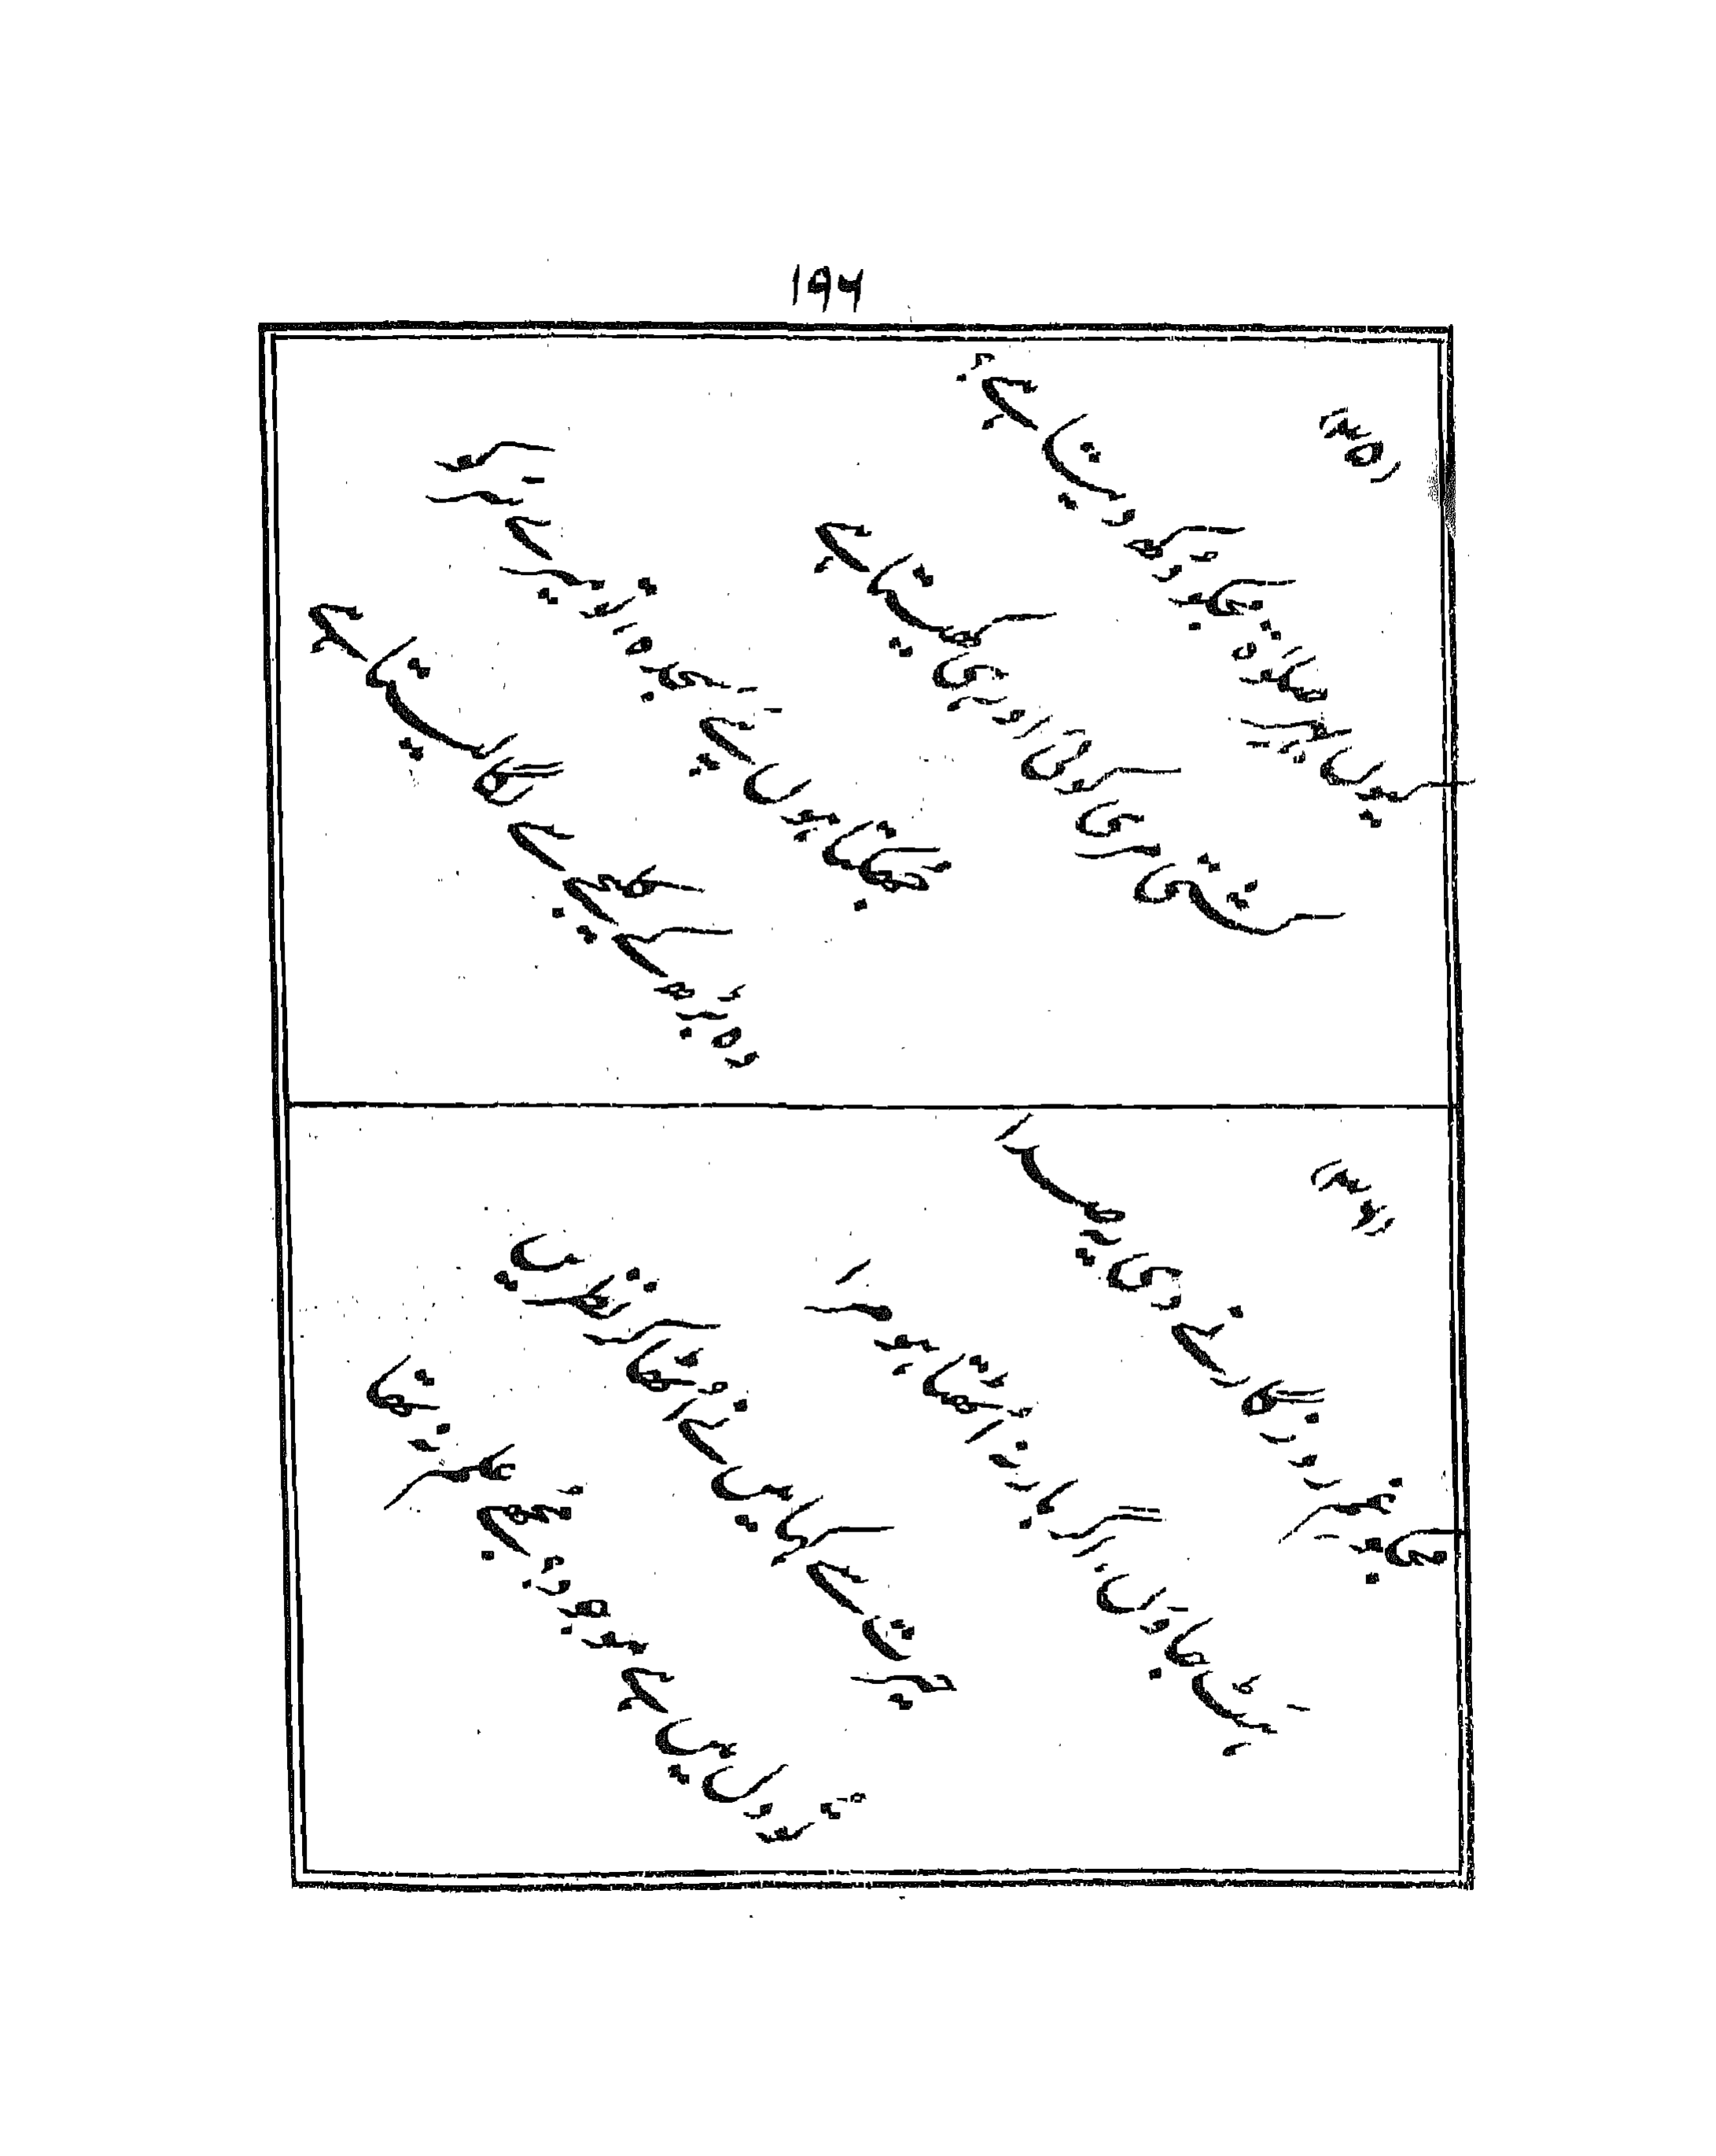 ۱۹۶
(۳۵)
کیوں پھر صلوٰۃ تجکو دکھ دیتا ہے؟
کشتی مری کوئی اور ہی کھیتا ہے
جھکتا ہوں پئے سجدہ تو میرے سر کو
وہ بڑھ کے کلیجے سے لگا لیتا ہے
(۳۶)
تھی بوغم روزگار نے دی یہ صدا
ہٹ جاؤں اگر بار نہ اٹھتا ہو مرا
حیرت سے کہا میں نے اٹھا کر نظریں
تو دل میں ہے موجود؟ مجھے علم نہ تھا